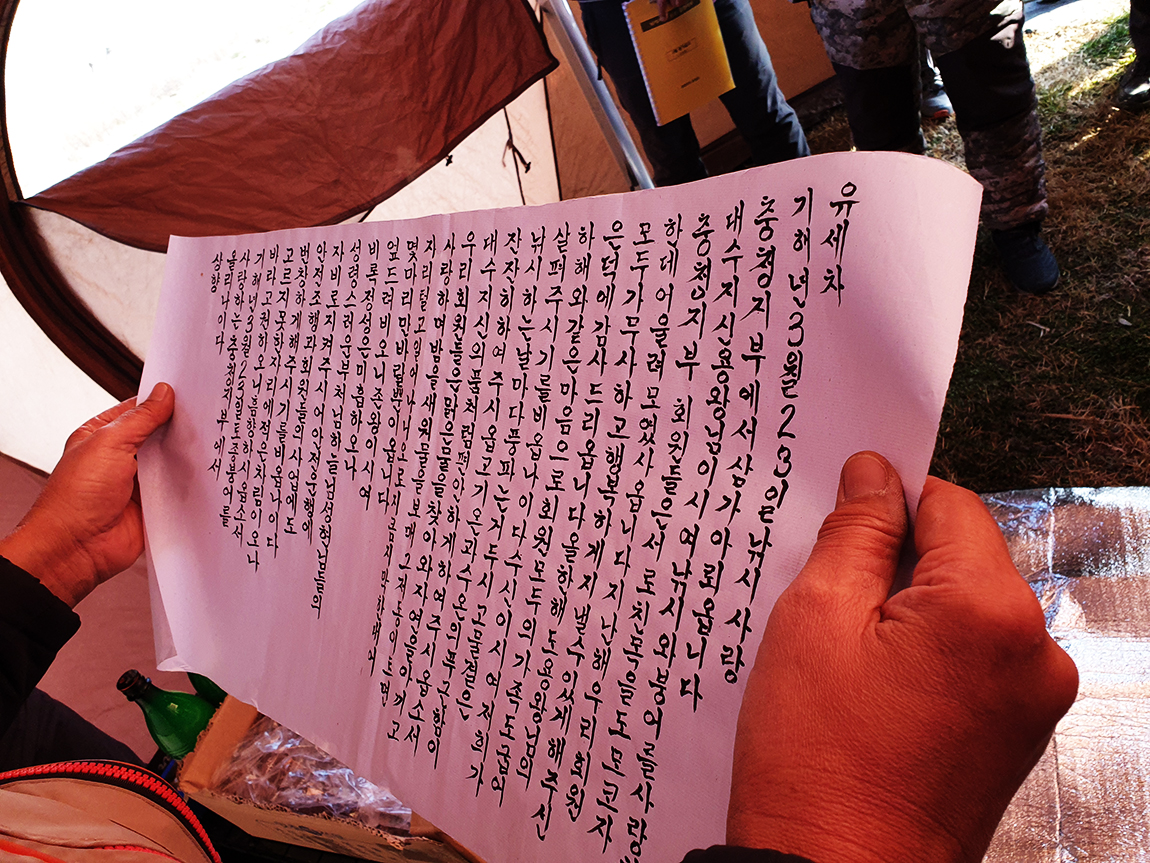 유세차
기해년 3월 23일 낚시사랑
충청지부에서 삼가 아뢰옵니다
대수지신 용왕님이시여 낚시와 붕어를 사랑
충청지부 회원들은 서로 친목을 도모코자
한데 어울려 모였사옵니다 지난해 우리 회원
모두가 무사하고 행복하게 지낼수 있게 해주신
은덕에 감사드리옵니다 올한해도 용왕님의
하해와 같은 마음으로 회원 모두의 가족도 굽어
살펴주시기를 비옵나이다 수신이시여 저희가
낚시하는 날마다 풍파는 거두시고 물결은
잔잔히 하여 주시옵고 기온과 수온의 폭
대수지신의 품처럼 편안하게 하여 주시옵소서
우리 회원들은 맑은 물을 찾아와 자연을 아끼고
사랑하며 밤을 새워 물을 보매 그저 동이 트면
자리 털고 일어나
몇마리 만 바랄뿐이옵니다
엎드려 비오니 존왕이시여
비록 정성은 미흡하오나
성령스러운 부처님 하늘님 성현님들의
자비로 지켜주시어 안전운행에
안전조행과 회원들의 사업에도
번창하게 해주시기를 비옵나이다
고르지 못한 자리에 적은 차림이오나
바라고 원하오니 흠향하시옵소서
기해년 3월 23일 토종붕어를
사랑하는 충청지부에서
올리나이다
상향